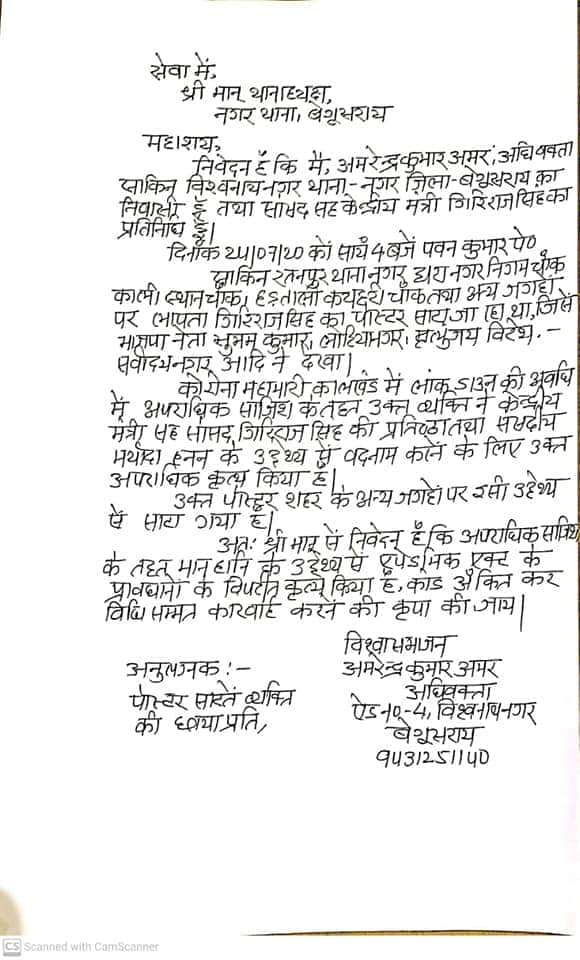 सेवा में,
श्री मान् थानाध्यक्ष,
नगर थाना, बेगूसराय
महाशय,
निवेदन है कि मैं, अमरेन्द्र कुमार अमर, अधिवक्ता
साकिन विश्वनाथनगर थाना-नगर ज़िला-बेगूसराय का
निवासी हूँ तथा सांसद सह केन्द्रीय मंत्री गिरिराज सिंह का
प्रतिनिधि हूँ।
दिनांक 24/07/20 को सायं 4 बजे पवन कुमार पे०
साकिन रतनपुर थाना नगर द्वारा नगर निगम चौक
काली स्थान चौक, हड़ताली कचहरी चौक तथा अन्य जगहों
पर लापता गिरिराज सिंह का पोस्टर साटा जा रहा था, जिसे
भाजपा नेता शुभम कुमार, लोहियानगर, मृत्युंजय विरेश.-
सर्वोदयनगर आदि ने देखा।
कोरोना महामारी कालखंड में लॉक डाउन की अवधि
में अपराधिक साजिश के तहत उक्त व्यक्ति ने केन्द्रीय
मंत्री सह सांसद गिरिराज सिंह की प्रतिष्ठा तथा संसदीय
मर्यादा हनन के उद्देश्य से वदनाम करने के लिए उक्त
अपराधिक कृत्य किया है।
उक्त पोस्टर शहर के अन्य जगहों पर इसी उद्देश्य
से साटा गया है।
अतः श्री मान् से निवेदन है कि अपराधिक साजिश
के तहत मान हानि के उद्देश्य से एपेडमिक एक्ट के
प्रावधानों के विपरीत कृत्य किया है, कांड अंकित कर
विधि सम्मत कारवाई करने की कृपा की जाय।
विश्वासभाजन
अनुलग्नक:- अमरेन्द्र कुमार अमर
पोस्टर साटते व्यक्ति अधिवक्ता
की छायाप्रति, 10-4, विश्वनाथनगर
बेगूसराय
9431251140
CS Scanned with CamScanner